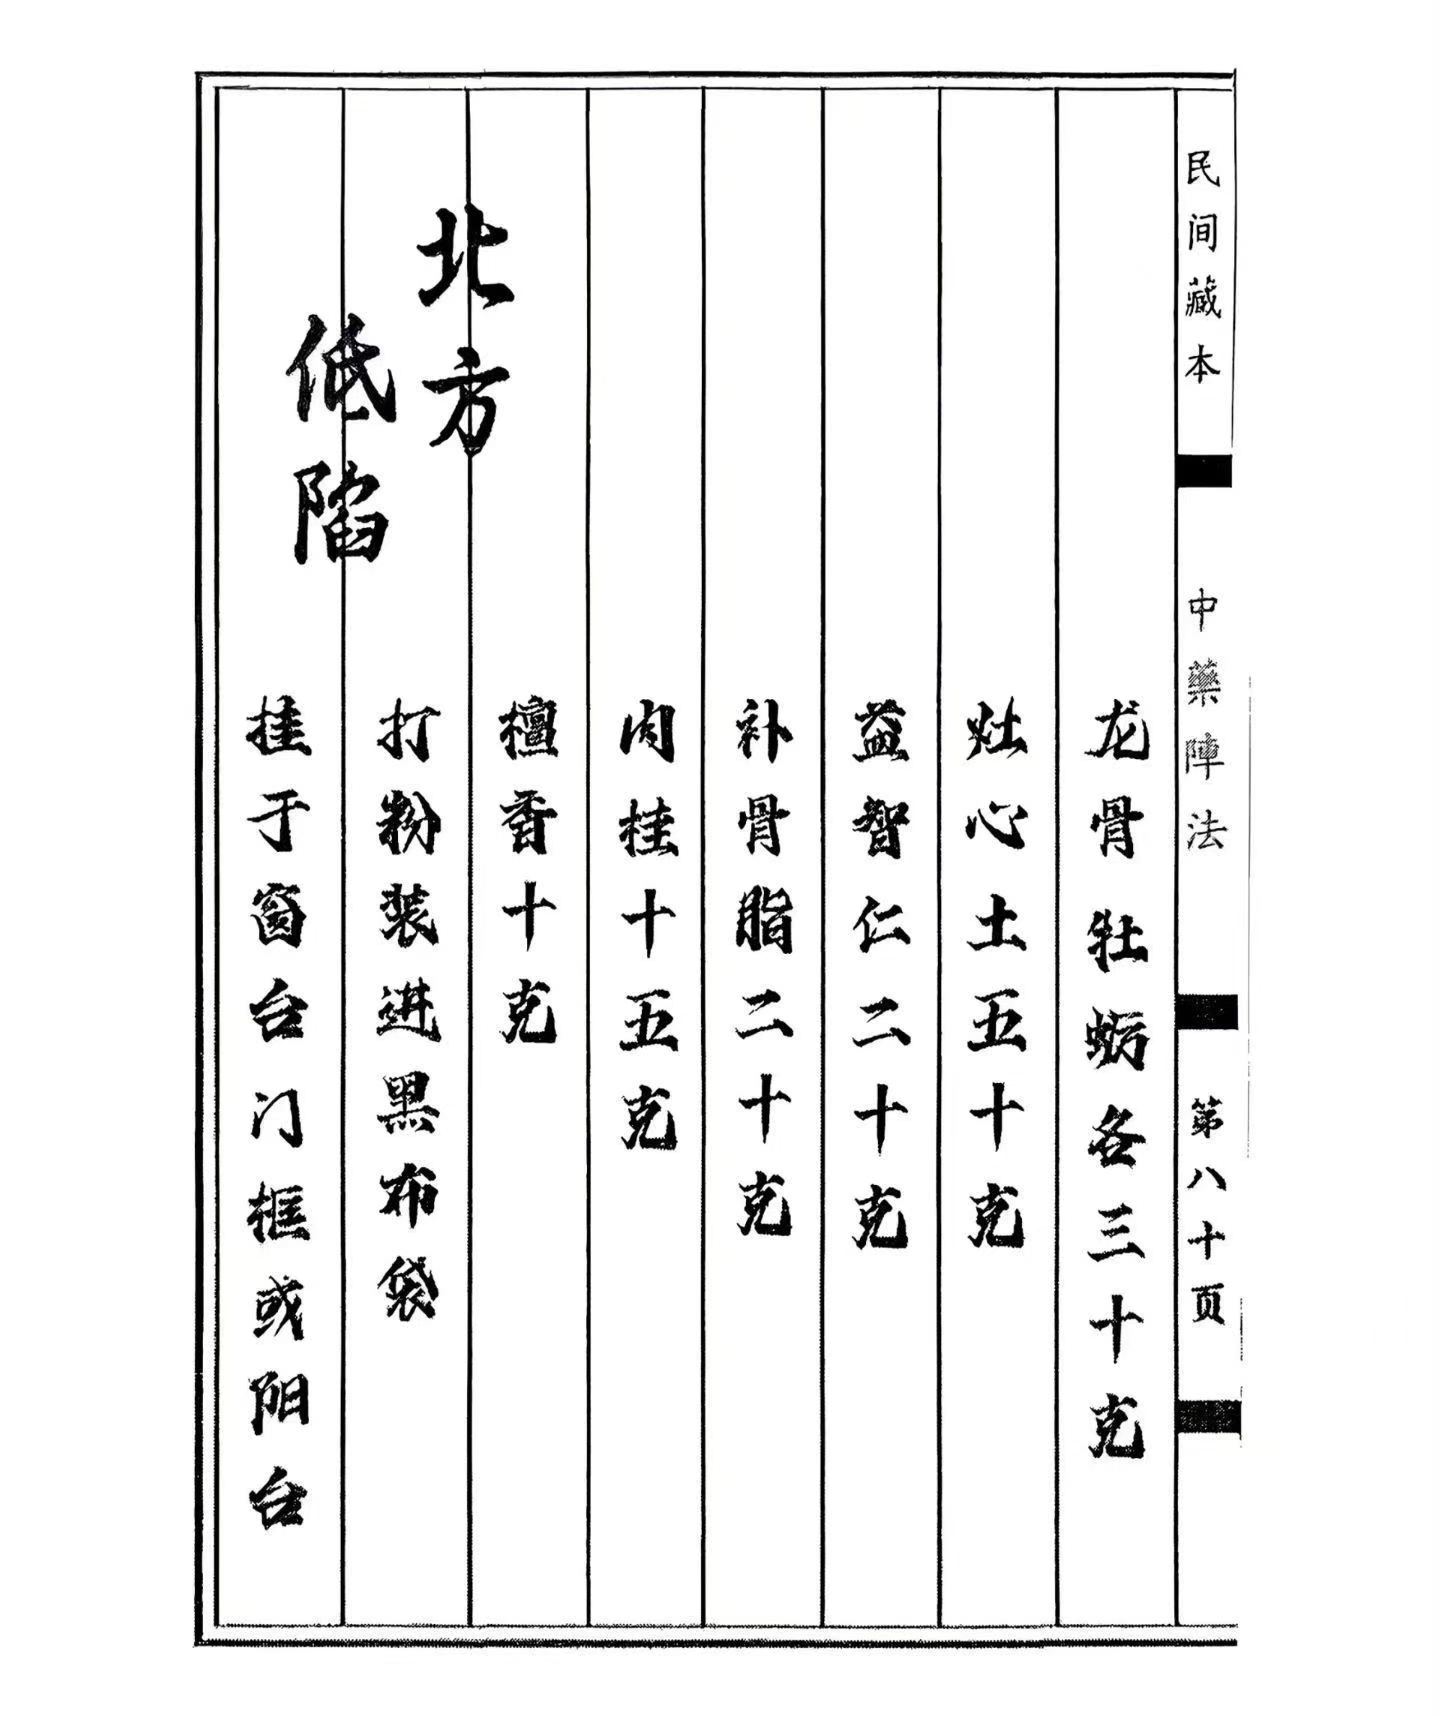 民间藏本
中藥陣法
第八十页
龙骨牡蛎各三十克
灶心土五十克
益智仁二十克
补骨脂二十克
肉桂十五克
檀香十克
北方
低陷
打粉装进黑布袋
挂于窗台门框或阳台